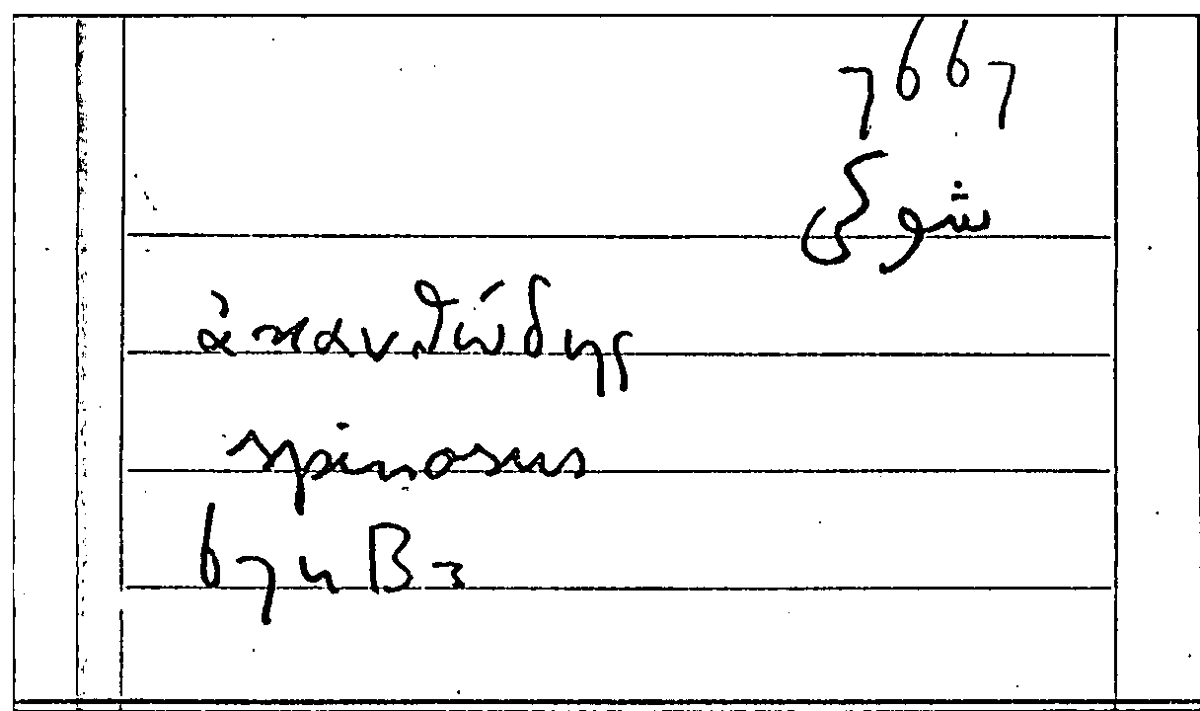 7667
شوكى
ἀκανθώδης
spinosus
674 B 3